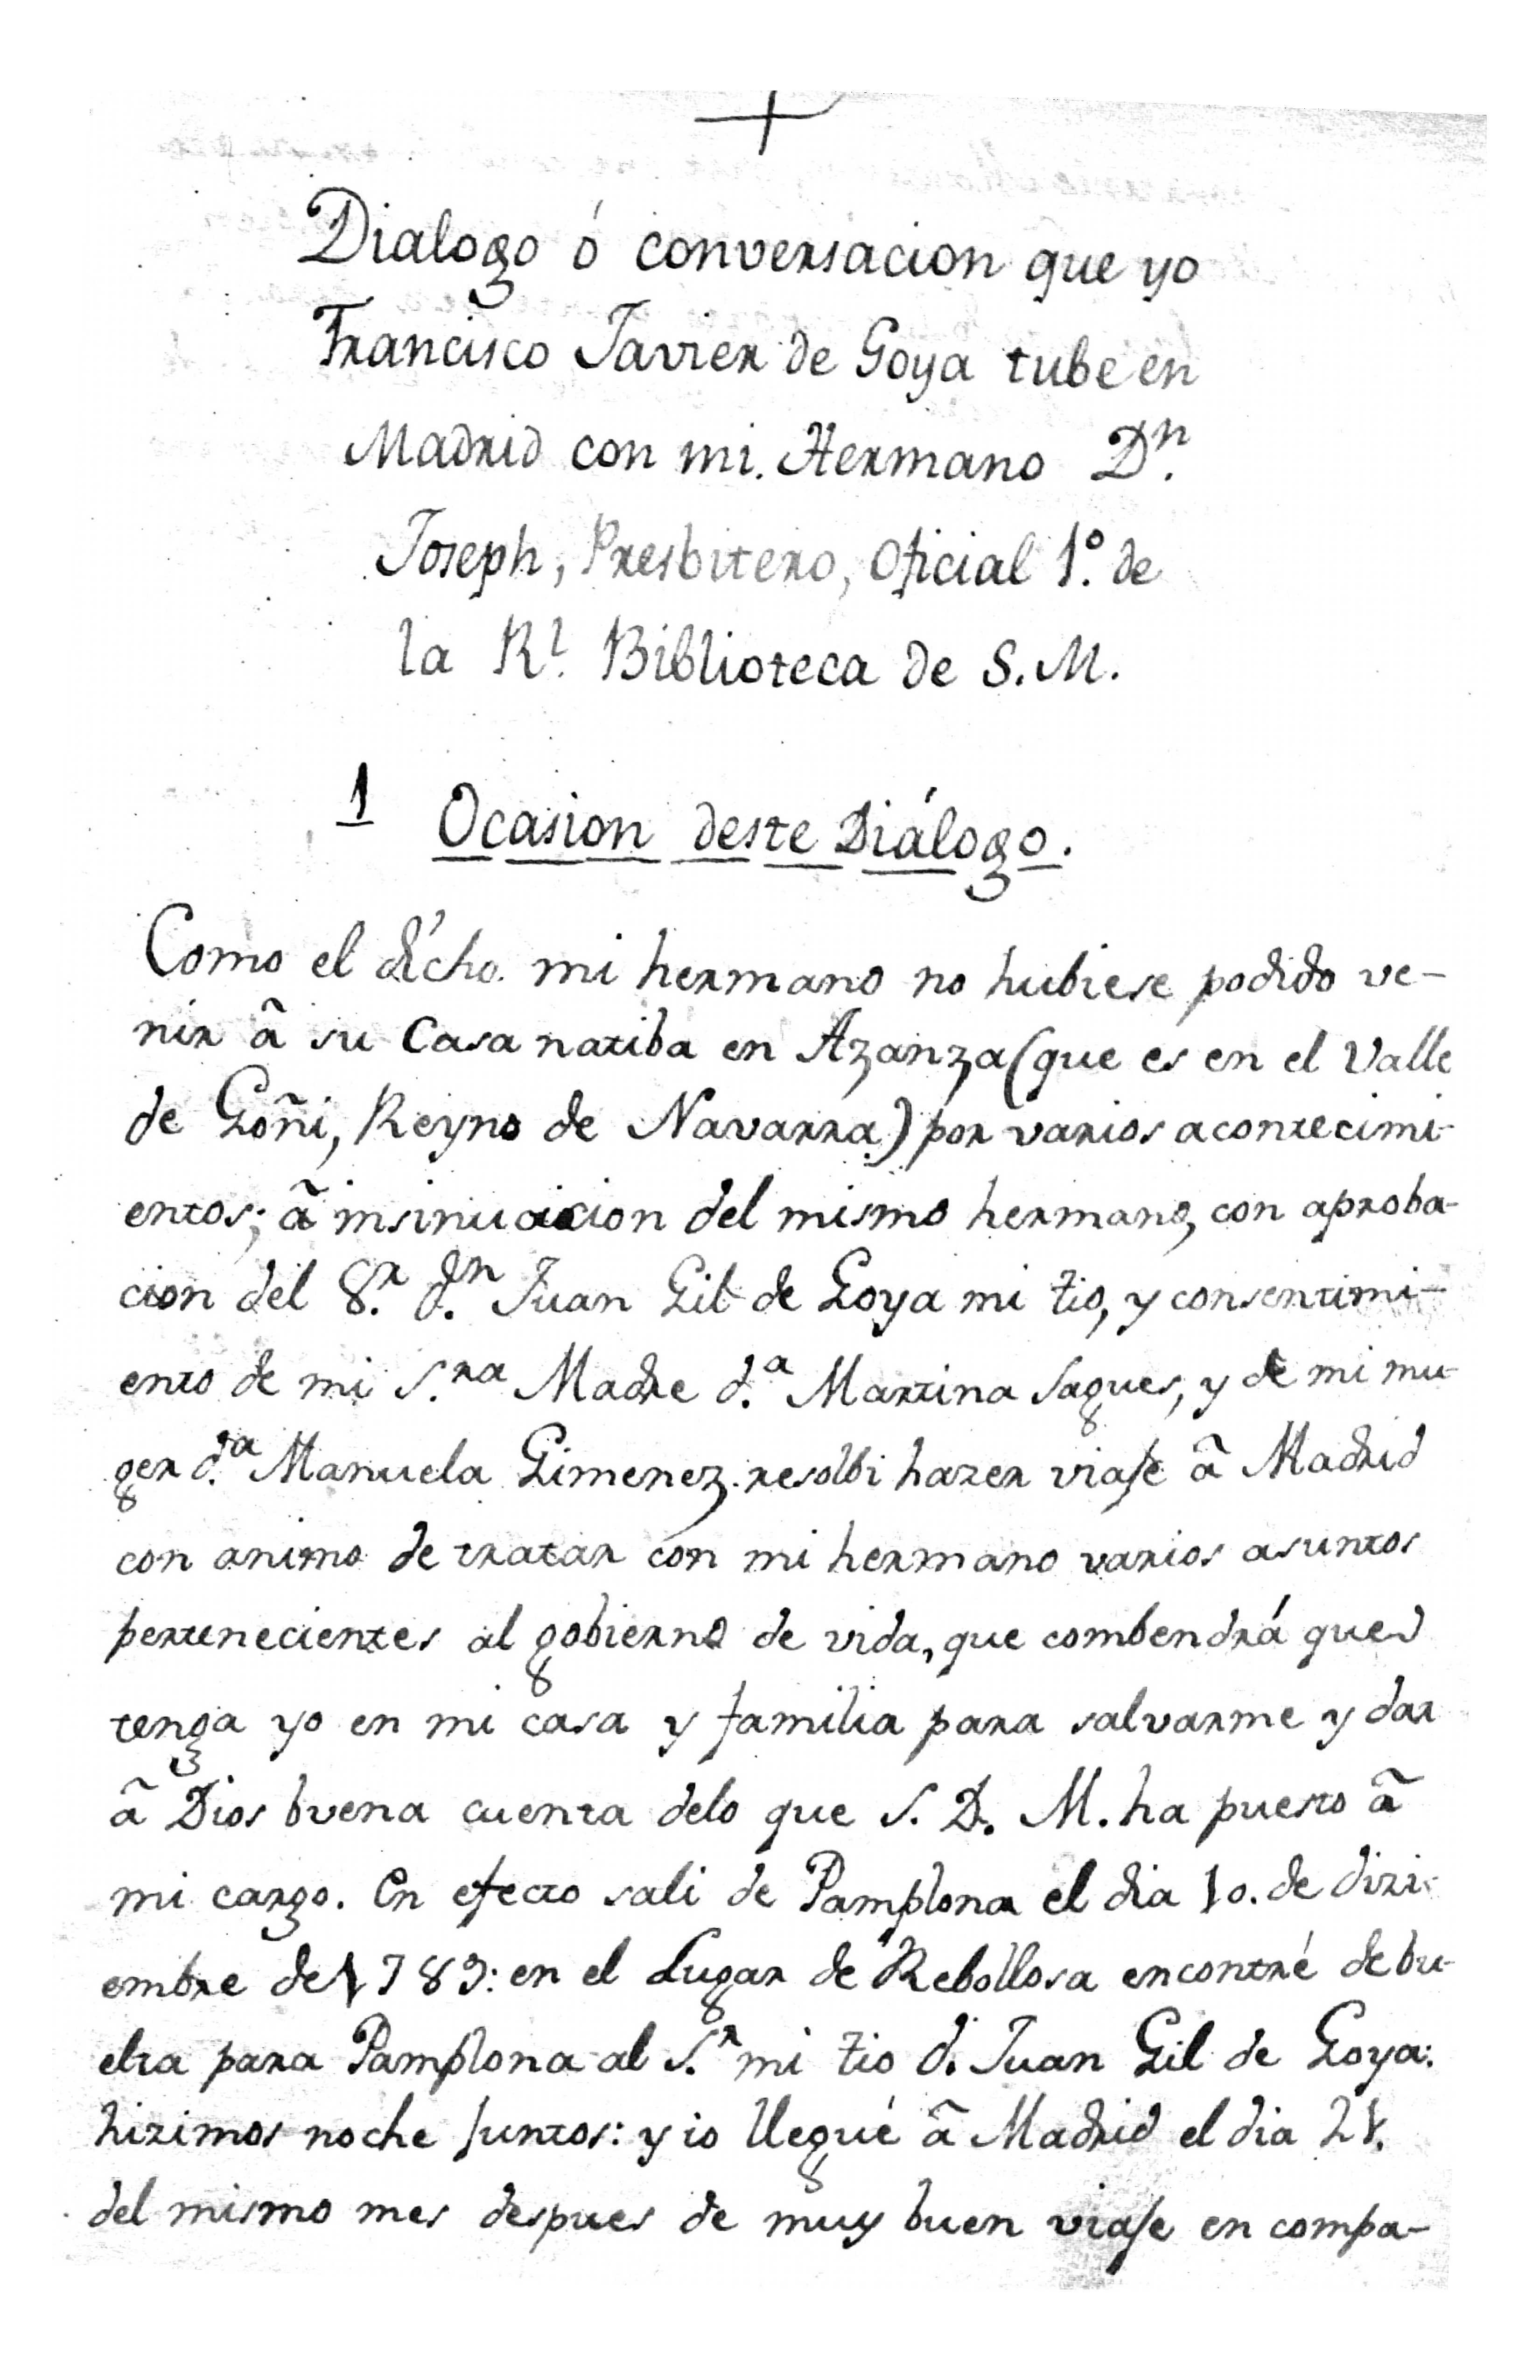 Dialogo ó conversacion que yo
Francisco Javier de Goya tube en
Madrid con mi Hermano Dn.
Joseph, Presbitero, Oficial 1.º de
la Rl. Biblioteca de S. M.
1 Ocasion deste Diálogo.
Como el dicho mi hermano no hubiese podido ve-
nir â su Casa natiba en Azanza (que es en el Valle
de Goñi, Reyno de Navarra) por varios acontecimi-
entos; â insinuacion del mismo hermano, con aproba-
cion del S.r d.n Juan Gil de Goya mi tio, y consentimi-
ento de mi S.ra Madre d.a Martina Sagues, y de mi mu-
ger d.a Manuela Gimenez resolbi hazer viaje â Madrid
con animo de tratar con mi hermano varios asuntos
pertenecientes al gobierno de vida, que combendrá que
tenga yo en mi casa y familia para salvarme y dar
â Dios buena cuenta delo que S. D. M. ha puesto â
mi cargo. En efecto sali de Pamplona el dia 10. de dizi-
embre de 1783: en el Lugar de Rebollosa encontré de bu-
elta para Pamplona al S.r mi tio d. Juan Gil de Goya:
hizimos noche juntos: y io llegué â Madrid el dia 21.
del mismo mes despues de muy buen viaje en compa-